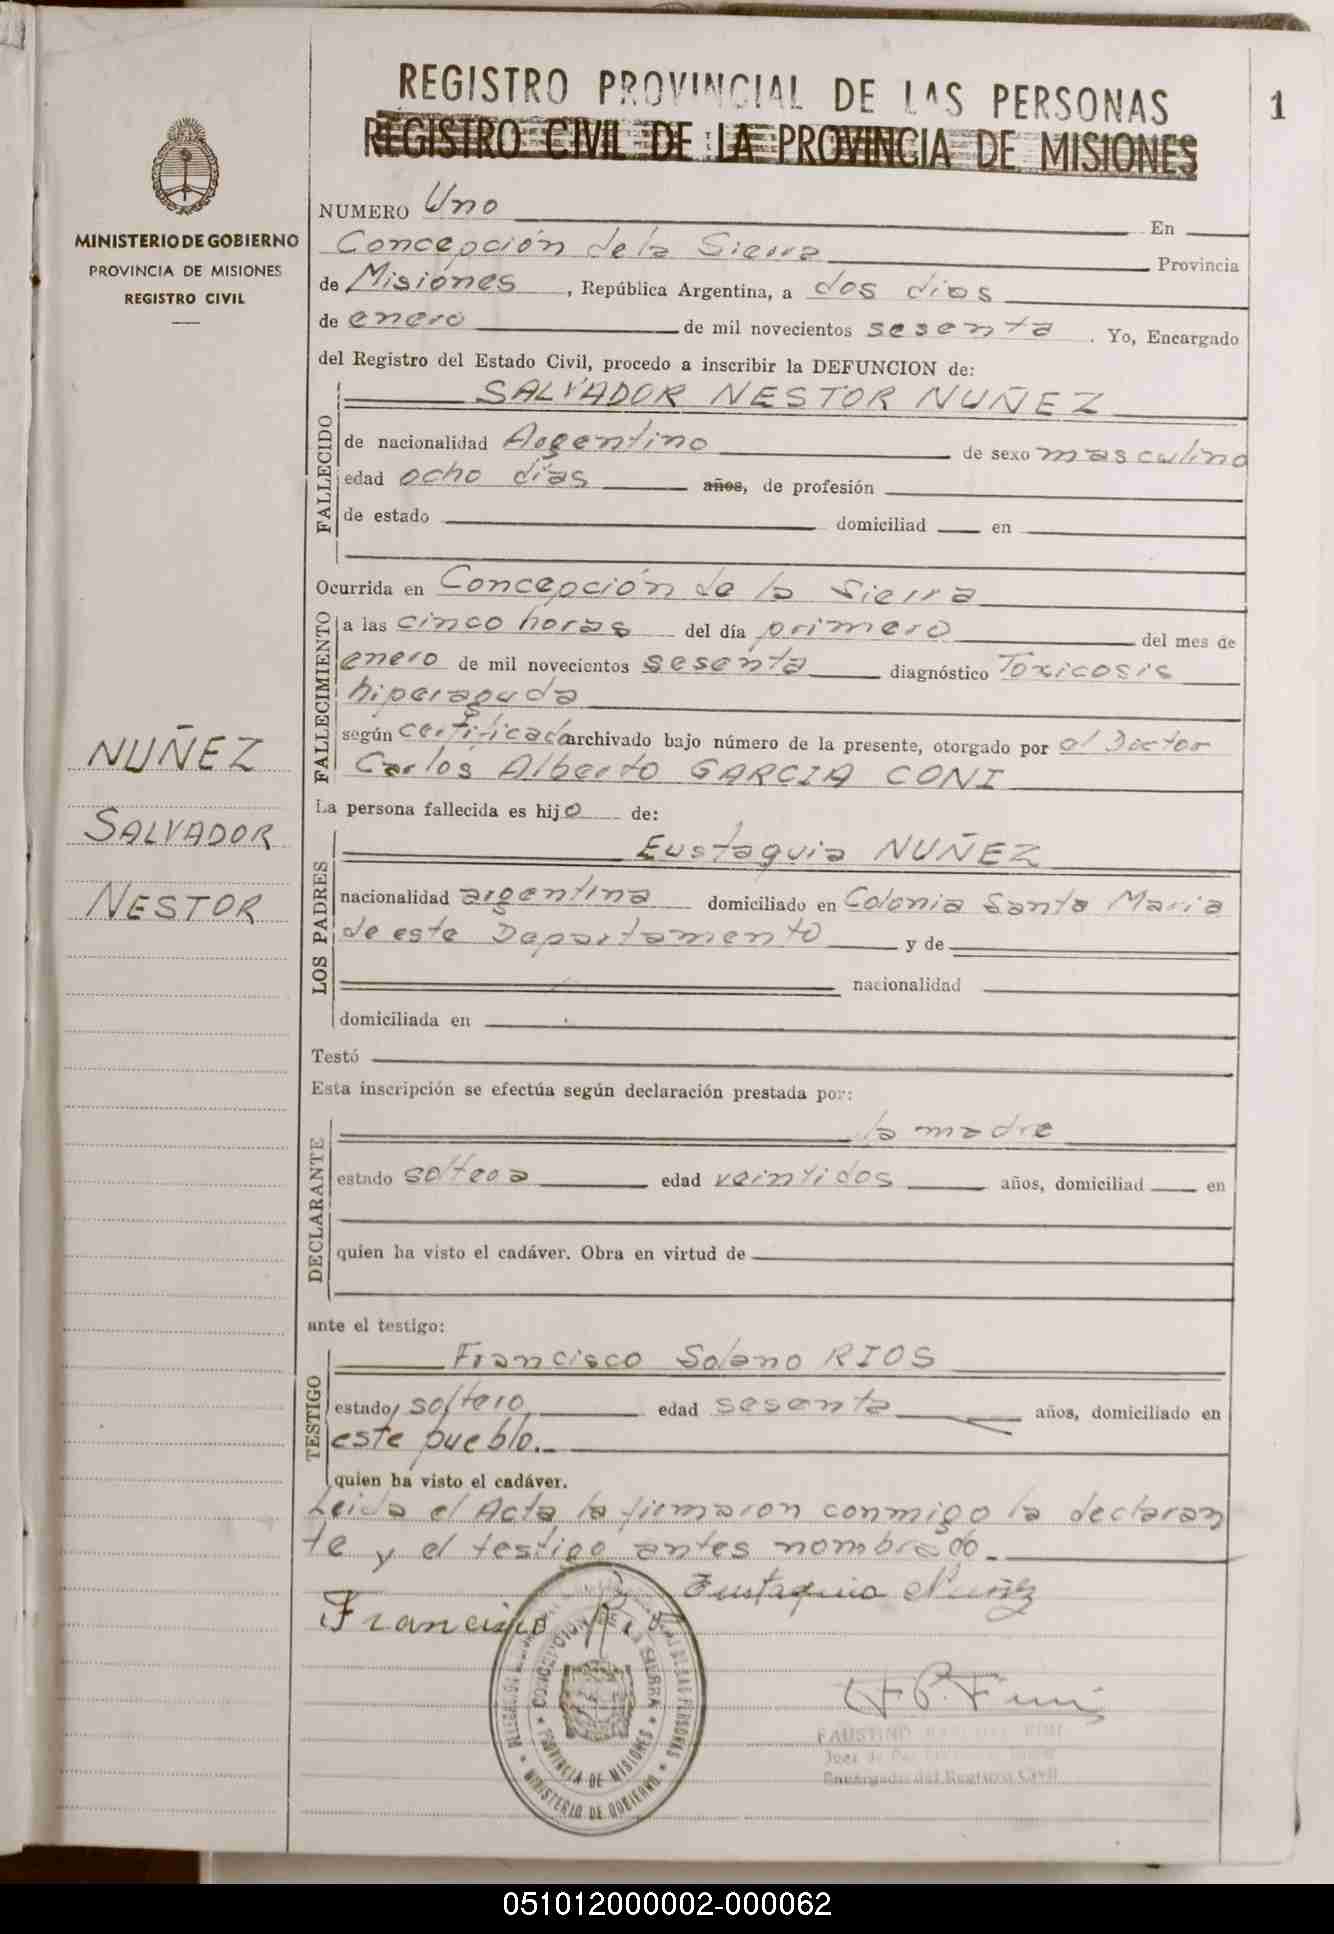 REGISTRO PROVINCIAL DE LAS PERSONAS
1
REGISTRO CIVIL DE LA PROVINCIA DE MISIONES
MINISTERIO DE GOBIERNO
PROVINCIA DE MISIONES
REGISTRO CIVIL
NUMERO Uno En
Concepción de la Sierra Provincia
de Misiones, República Argentina, a dos dias
de enero de mil novecientos sesenta. Yo, Encargado
del Registro del Estado Civil, procedo a inscribir la DEFUNCION de:
FALLECIDO
SALVADOR NESTOR NUÑEZ
de nacionalidad Argentino de sexo masculino
edad ocho días años, de profesión
de estado domiciliad en
Ocurrida en Concepción de la Sierra
FALLECIMIENTO
a las cinco horas del día primero del mes de
enero de mil novecientos sesenta diagnóstico Toxicosis
hiperaguda
según certificado archivado bajo número de la presente, otorgado por el Doctor
Carlos Alberto GARCIA CONI
NUÑEZ
SALVADOR
NESTOR
La persona fallecida es hijo de:
LOS PADRES
Eustaquia NUÑEZ
nacionalidad argentina domiciliado en Colonia Santa Maria
de este Departamento y de
nacionalidad
domiciliada en
Testó
Esta inscripción se efectúa según declaración prestada por:
DECLARANTE
la madre
estado soltera edad veintidos años, domiciliad en
quien ha visto el cadáver. Obra en virtud de
ante el testigo:
TESTIGO
Francisco Solano RIOS
estado soltero edad sesenta años, domiciliado en
este pueblo.
quien ha visto el cadáver.
Leida el Acta la firmaron conmigo la declaran
te y el testigo antes nombrado.
Eustaquia Nuñez
Francisco
CONCEPCION DE LA SIERRA
PROVINCIA DE MISIONES
MINISTERIO DE GOBIERNO
DE LAS PERSONAS
FAUSTINO
Juez de Paz
Encargado del Registro Civil
051012000002-000062